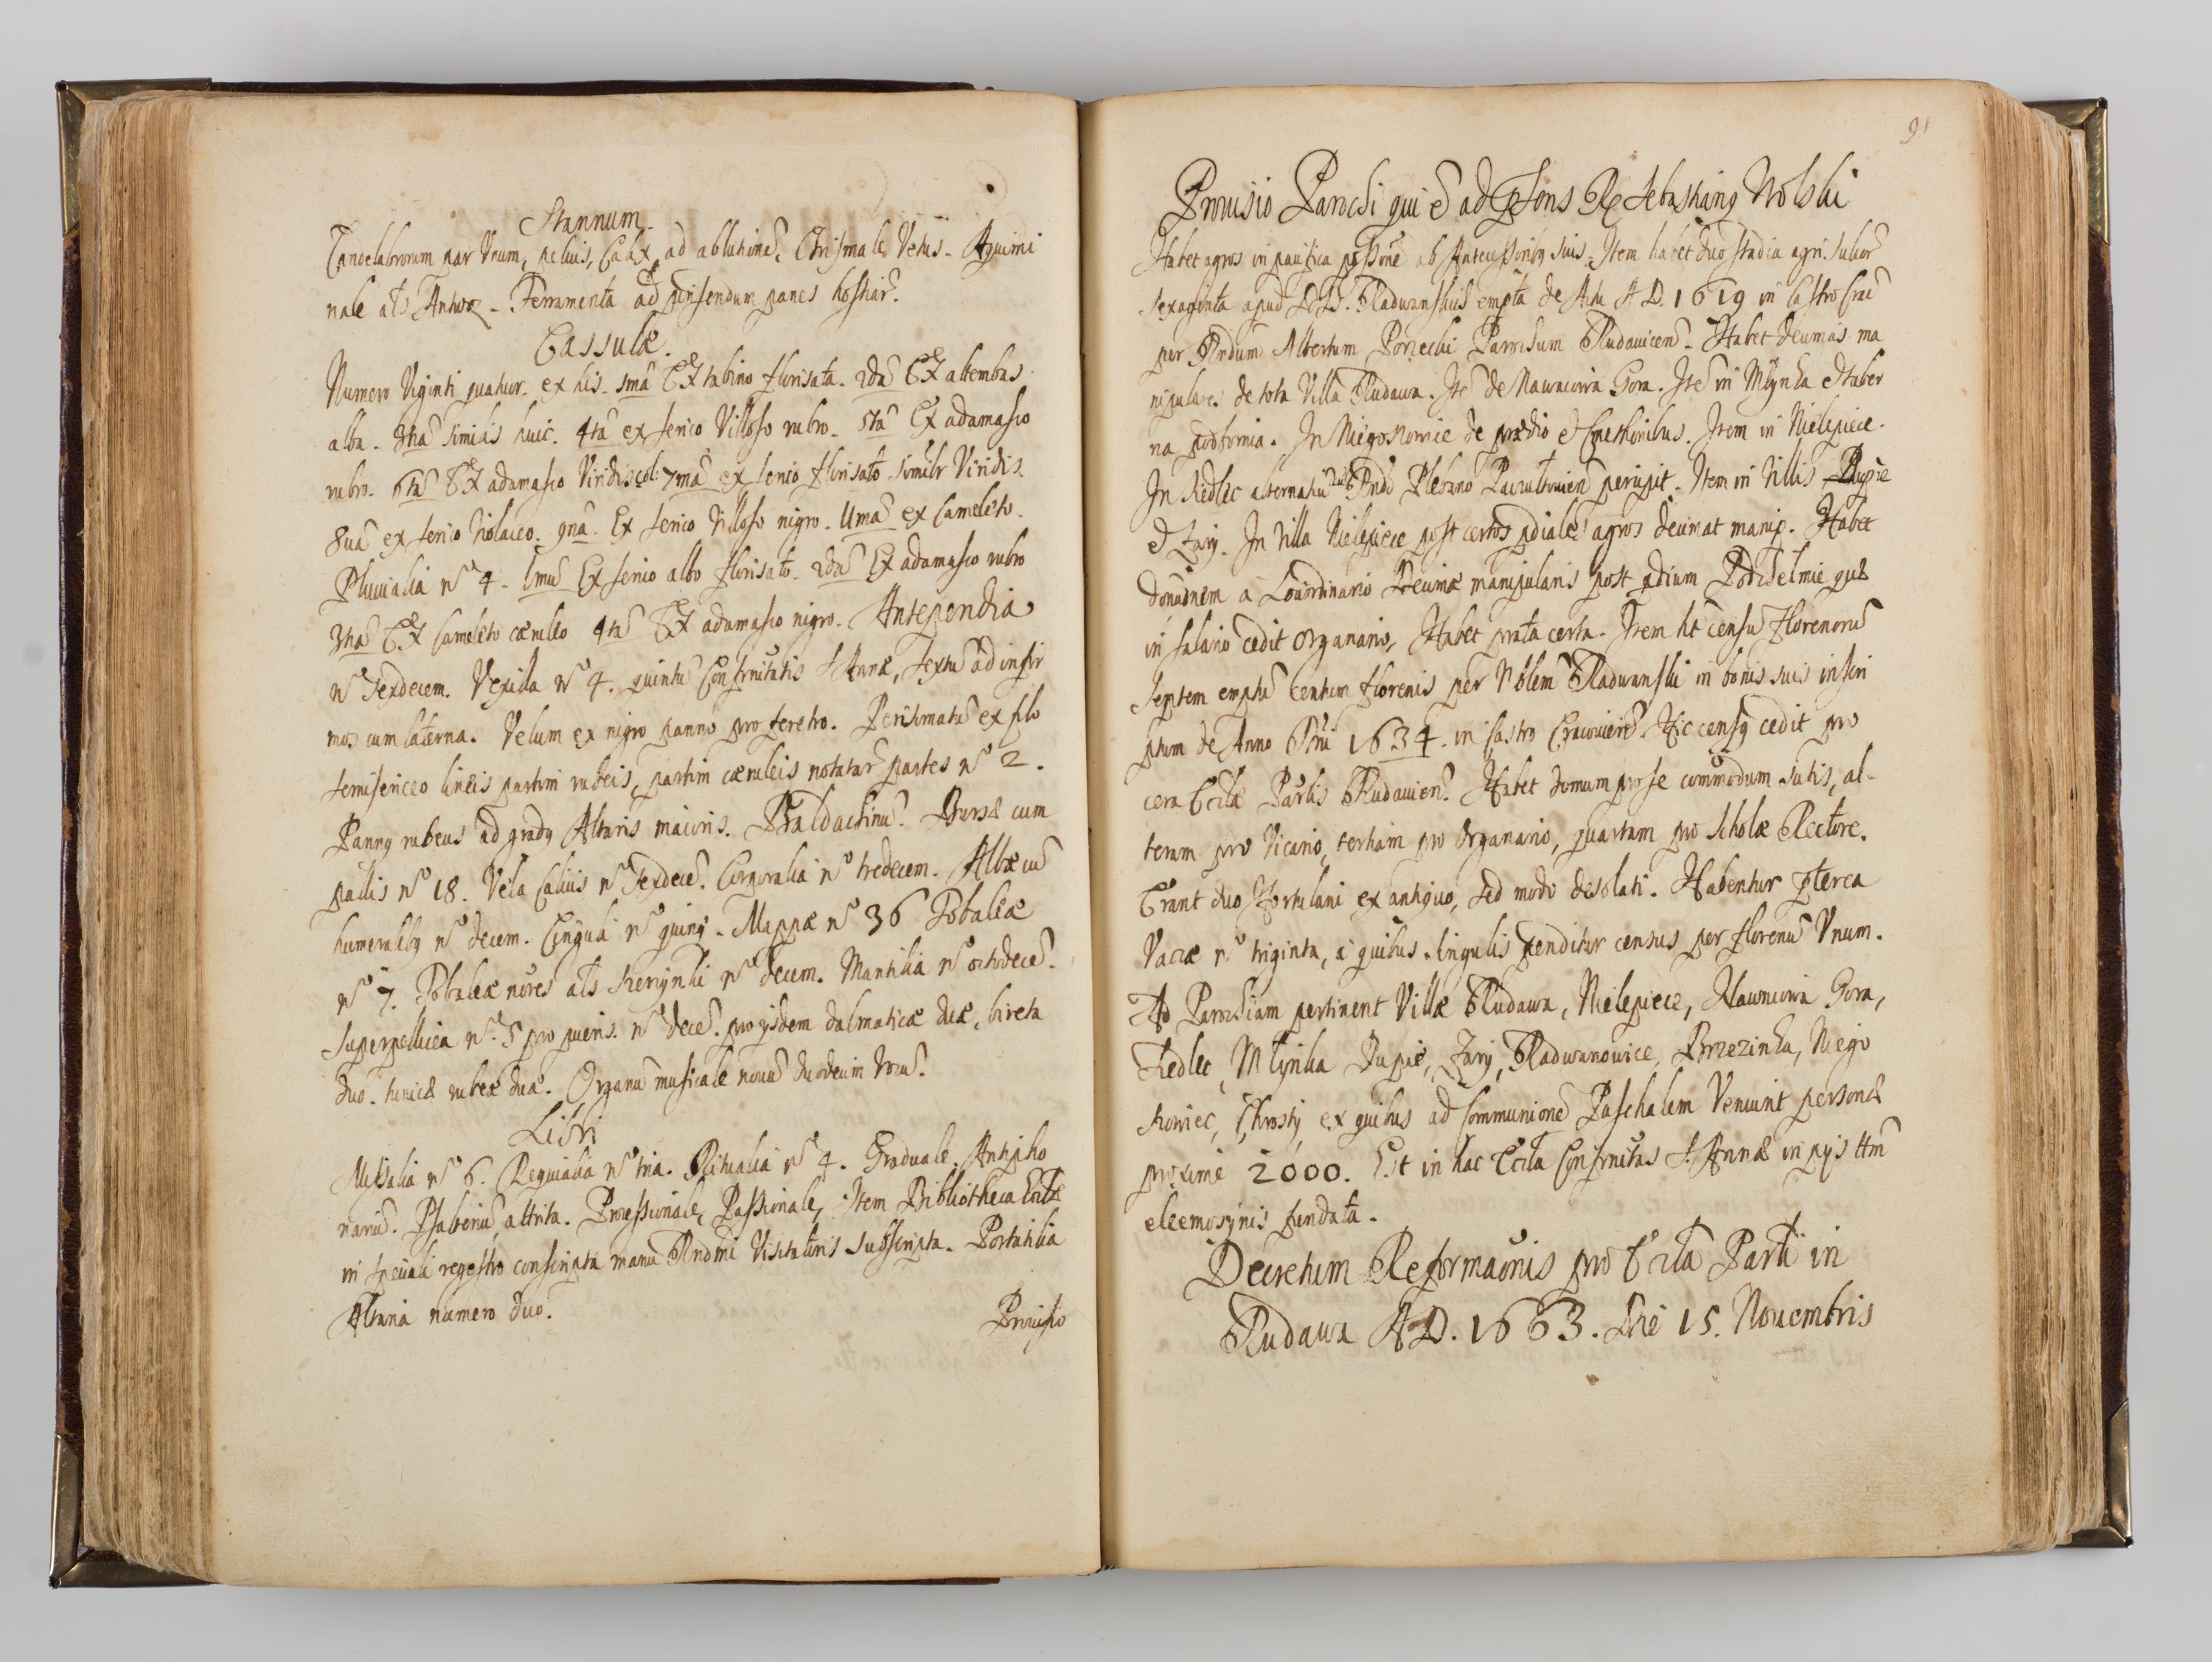 Stannum.
Candelabrorum par Vnum, peluis, Calix ad ablutione, Chrismale Vetus. Aquimi
nale als Antwoz. Ferramenta ad pinsendum panes hostiar.
Cassulæ.
Numero Viginti quatuor. ex his. 1ma Ex tabino florisata. 2da Ex altembas
alba. 3tia similis huic. 4ta ex serico Villoso rubro. 5ta Ex adamasco
rubro. 6ta Ex adamasco Viridis col: 7ma ex serico florisato similr Viridis.
8ua ex serico Violaceo. 9na. Ex serico Villoso nigro. Ulma ex Cameleto.
Pluuialia No 4. 1mu Ex serico albo florisato. 2du Ex adamasco rubro
3tiu Ex Cameleto cæruleo 4tu Ex adamasco nigro. Antependia
No Sexdecem. Vexilla No 4. quintu Confrnitatis S Annæ, Sextu ad infir
mos cum laterna. Velum ex nigro panno pro feretro. Peristromatu ex filo
semisericeo lineis partim rubeis, partim cæruleis notatar partes No 2.
Pannus rubeus ad gradus Altaris maioris. Baldachinu. Bursæ cum
pallis No 18. Vela Calicis No Sexdece. Corporalia No tredecem. Albæ cu
humeralibus No decem. Cinguli No quinque. Mappæ No 36 Tobaleæ
No 7. Tobaleæ nores als Scierynki No decem. Mantilia No octodece.
Superpellicea No 5 pro pueris. No dece. pro ijsdem dalmaticæ duæ, bireta
duo. tunicæ rubeæ duæ. Organu musicale nouu duodecim vocu.
Libri
Missalia No 6. Requialia No tria. Ritualia No 4. Graduale. Antipho
nariu. Psalteriu, attrita. Processionale, Passionale, Item Bibliotheca Ecclæ
in speciali regestro conscripta manu Rndmi Visitatoris subscripta. Portatilia
Altaria numero duo.
Prouisio
91
Prouisio Parochi qui e ad psens R Sebastianus Wolski
Habet agros in paucifica possone ab Antecessoribus suis. Item habet duo stadia agri. sulcor
sexaginta apud DD. Raduanskius empta de Actu A D. 1619 in Castro Crac
per Rndum Albertum Porzecki Parochum Rudauicen. Habet decimas ma
nipulares de tota Villa Rudawa. Ite de Nawacowa Gora. Ite in Mlynka et taber
na podtomia. In Niegoszowice de prædio et Cmethonibus. Item in Nielepice.
In Siedlec alternatiu cu Rndo Plebano Paczultouien percipit. Item in Villis Dupie
et Zary. In Villa Nielepice post certos pdiales agros decimat manip. Habet
donaonem a Loci Ordinario Decimæ manipularis post pdium Podchelmie quæ
in salario cedit Organario, Habet prata certa. Item ht censu Florenoru
Septem emptu Centum florenis per Nblem Raduanski in bonis suis inscri
ptum de Anno Dni 1634. in Castro Cracouien. Hic census cedit pro
cera Ecclæ Parlis Rudauien. Habet domum pro se commodam satis, al-
teram pro Vicario, tertiam pro Organario, quartam pro Scholæ Rectore.
Erant duo Hortulani ex antiquo, sed modo desolati. Habentur pterea
Vaccæ No triginta, a quibus singulis penditur census per florenu Vnum.
Ad Parochiam pertinent Villæ Rudawa, Nielepiece, Nawocowa Gora,
Siedlec, Mlynka Dupie, Zary, Raduanowice, Brzezinka, Niego
szowiec, Chrosty ex quibus ad Communione Paschalem Veniunt personæ
proxime 2000. Est in hac Eccla Confrnitas S. Annæ in pijs ttm
eleemosynis fundata.
Decretum Reformaonis pro Eccla Parli in
Rudawa A D. 1663. Die 15. Nouembris